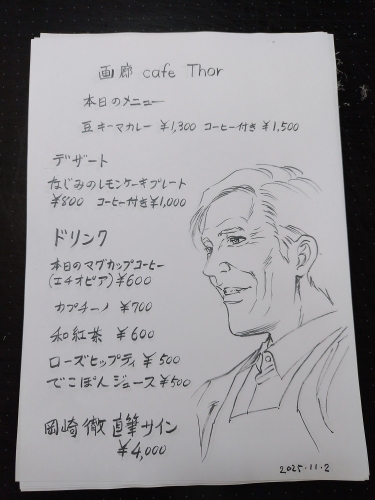 画廊 cafe Thor
本日のメニュー
豆キーマカレー ¥1,300 コーヒー付き ¥1,500
デザート
なじみのレモンケーキプレート
¥800 コーヒー付き ¥1,000
ドリンク
本日のマグカップコーヒー
(エチオピア) ¥600
カプチーノ ¥700
和紅茶 ¥600
ローズヒップティ ¥500
でこぽんジュース ¥500
岡崎 徹 直筆サイン
¥4,000
2025.11.2